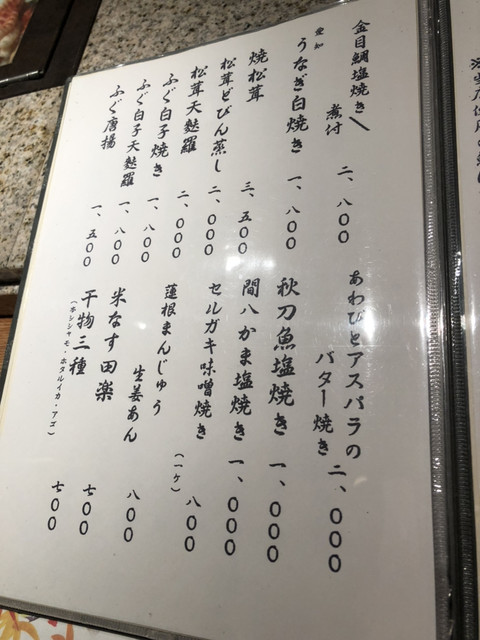 金目鯛塩焼き
煮付
二、八〇〇
愛知
うなぎ白焼き
一、八〇〇
焼松茸
三、五〇〇
松茸どびん蒸し
二、〇〇〇
松茸天麩羅
二、〇〇〇
ふぐ白子焼き
一、八〇〇
ふぐ白子天麩羅
一、八〇〇
ふぐ唐揚
一、五〇〇
あわびとアスパラの
バター焼き
二、〇〇〇
秋刀魚塩焼き
一、〇〇〇
間八かま塩焼き
一、〇〇〇
セルガキ味噌焼き
(一ケ)
八〇〇
蓮根まんじゅう
生姜あん
八〇〇
米なす田楽
七〇〇
干物三種
(本シシャモ・ホタルイカ・アゴ)
七〇〇